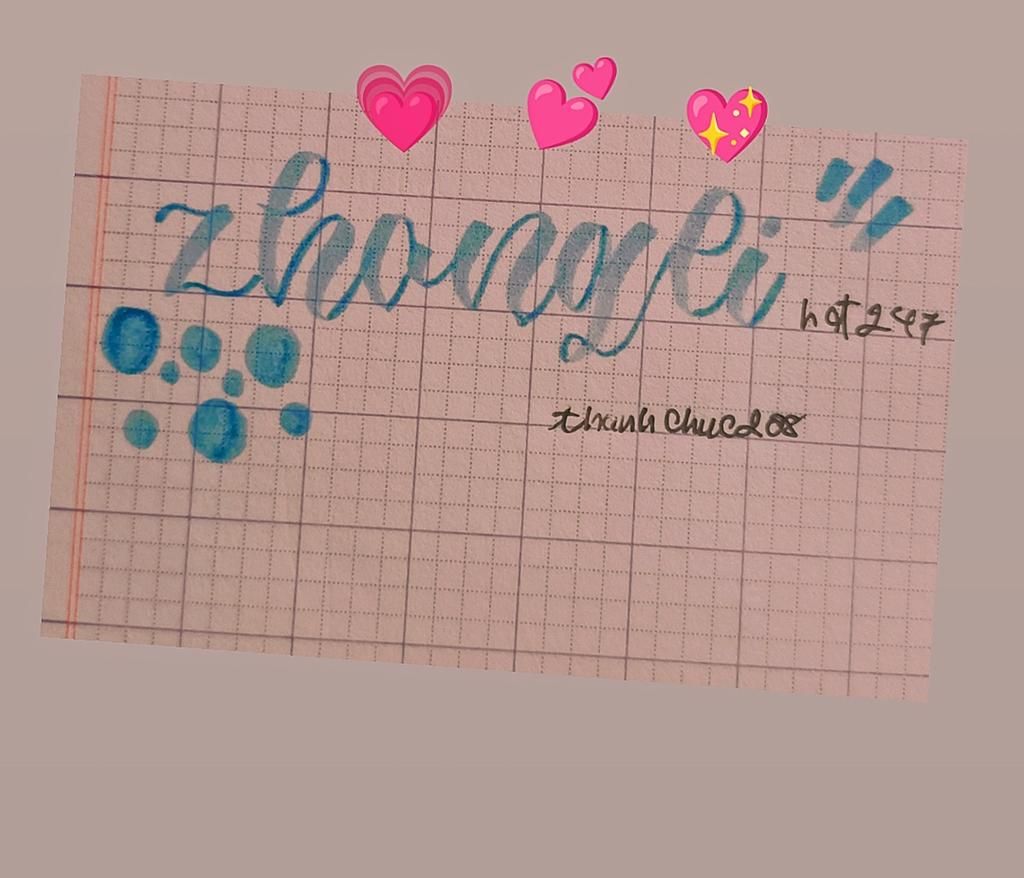 zhongli
hot247
thanhchucd08